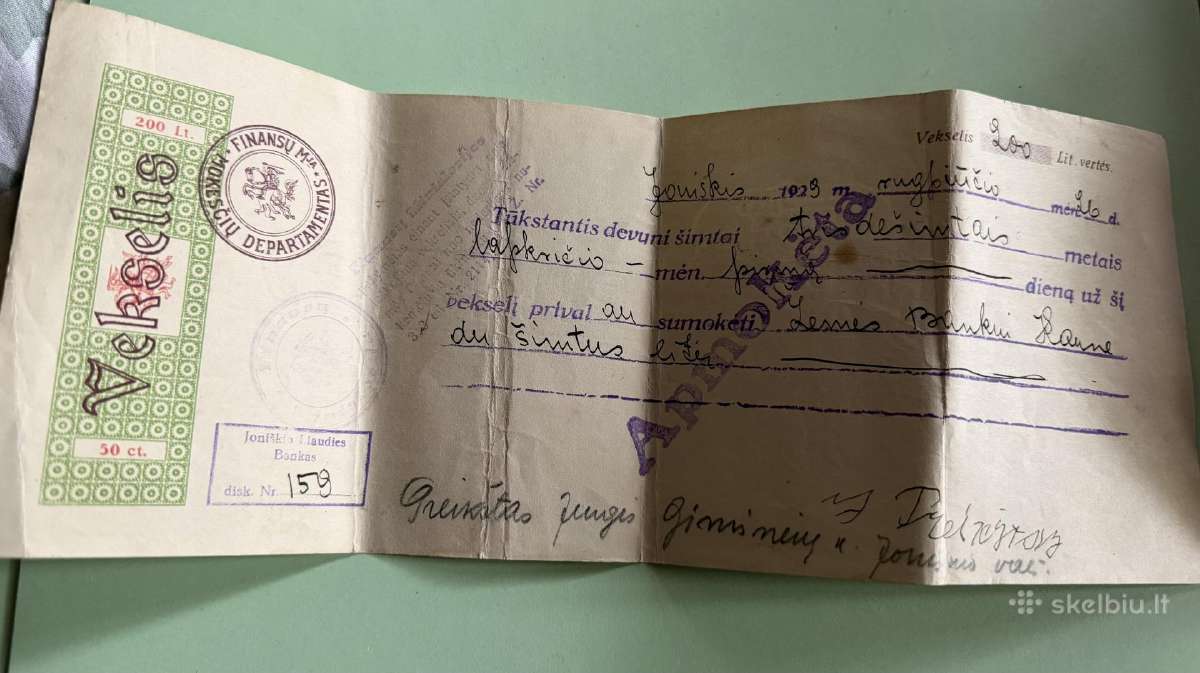 200 Lt.
Vekselis
50 ct.
FINANSŲ M-JA
MOKESČIŲ DEPARTAMENTAS
Joniškio Liaudies
Bankas
disk. Nr. 159
Vekselis 200 Lit. vertės.
Joniškis 1929 m. rugpiūčio mėn. 26 d.
Tūkstantis devyni šimtai dešimtais metais
lapkričio – mėn. dieną už šį
vekselį prival au sumokėti Žemės Bankui Kaune
du šimtus litų
Apmokėta
Giminėnų k. Joniškio val.
skelbiu.lt